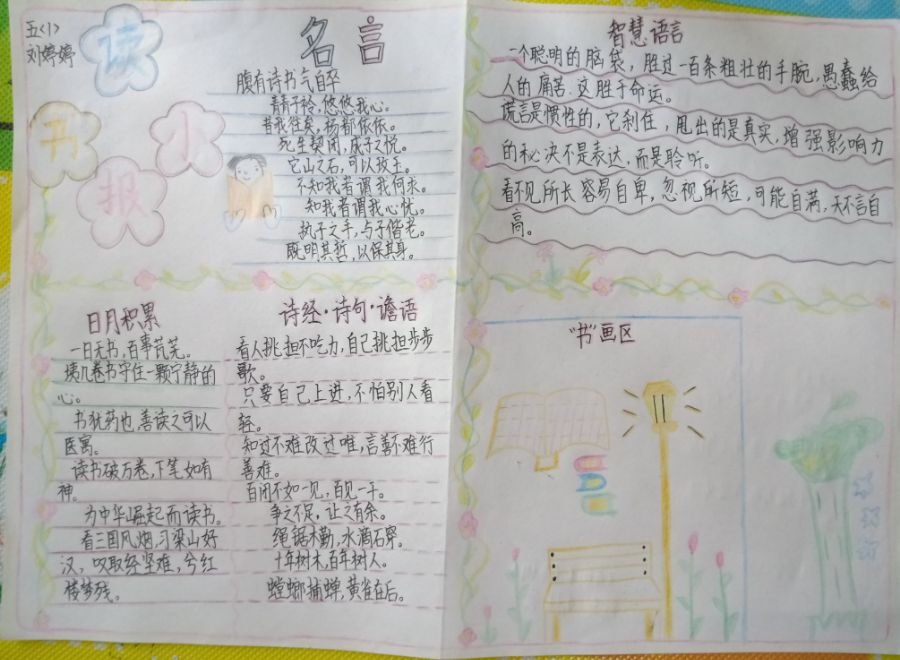 五(1)
刘婷婷
读
书
小
报
名言
腹有诗书气自卒
青青子衿,悠悠我心。
昔我往矣,杨都依依。
死生契阔,成子之悦。
它山之石,可以攻玉。
不知我者谓我何求。
知我者谓我心忧。
执子之手,与子偕老。
聪明其哲,以保其身。
智慧语言
一个聪明的脑袋,胜过一百条粗壮的手腕,愚蠢给
人的痛苦.这胜于命运。
谎言是惯性的,它刹住,甩出的是真实,增强影响力
的秘决不是表达,而是聆听。
看不见所长容易自卑,忽视所短,可能自满,天不言自
高。
日月积累
一日无书,百事荒芜。
读几卷书守住一颗宁静的
心。
书犹药也,善读之可以
医寓。
读书破万卷,下笔如有
神。
为中华崛起而读书。
看三国风烟,习梁山好
汉,叹取经坚难,兮红
楼梦残。
诗经·诗句·谵语
看人挑担不吃力,自己挑担步步
歌。
只要自己上进,不怕别人看
轻。
知过不难改过唯,言善不难行
善难。
百闭不如一见,百见一干。
争之不足,让之有余。
绳锯木勤,水滴石穿。
十年树木,百年树人。
螳螂捕蝉,黄雀在后。
"书"画区